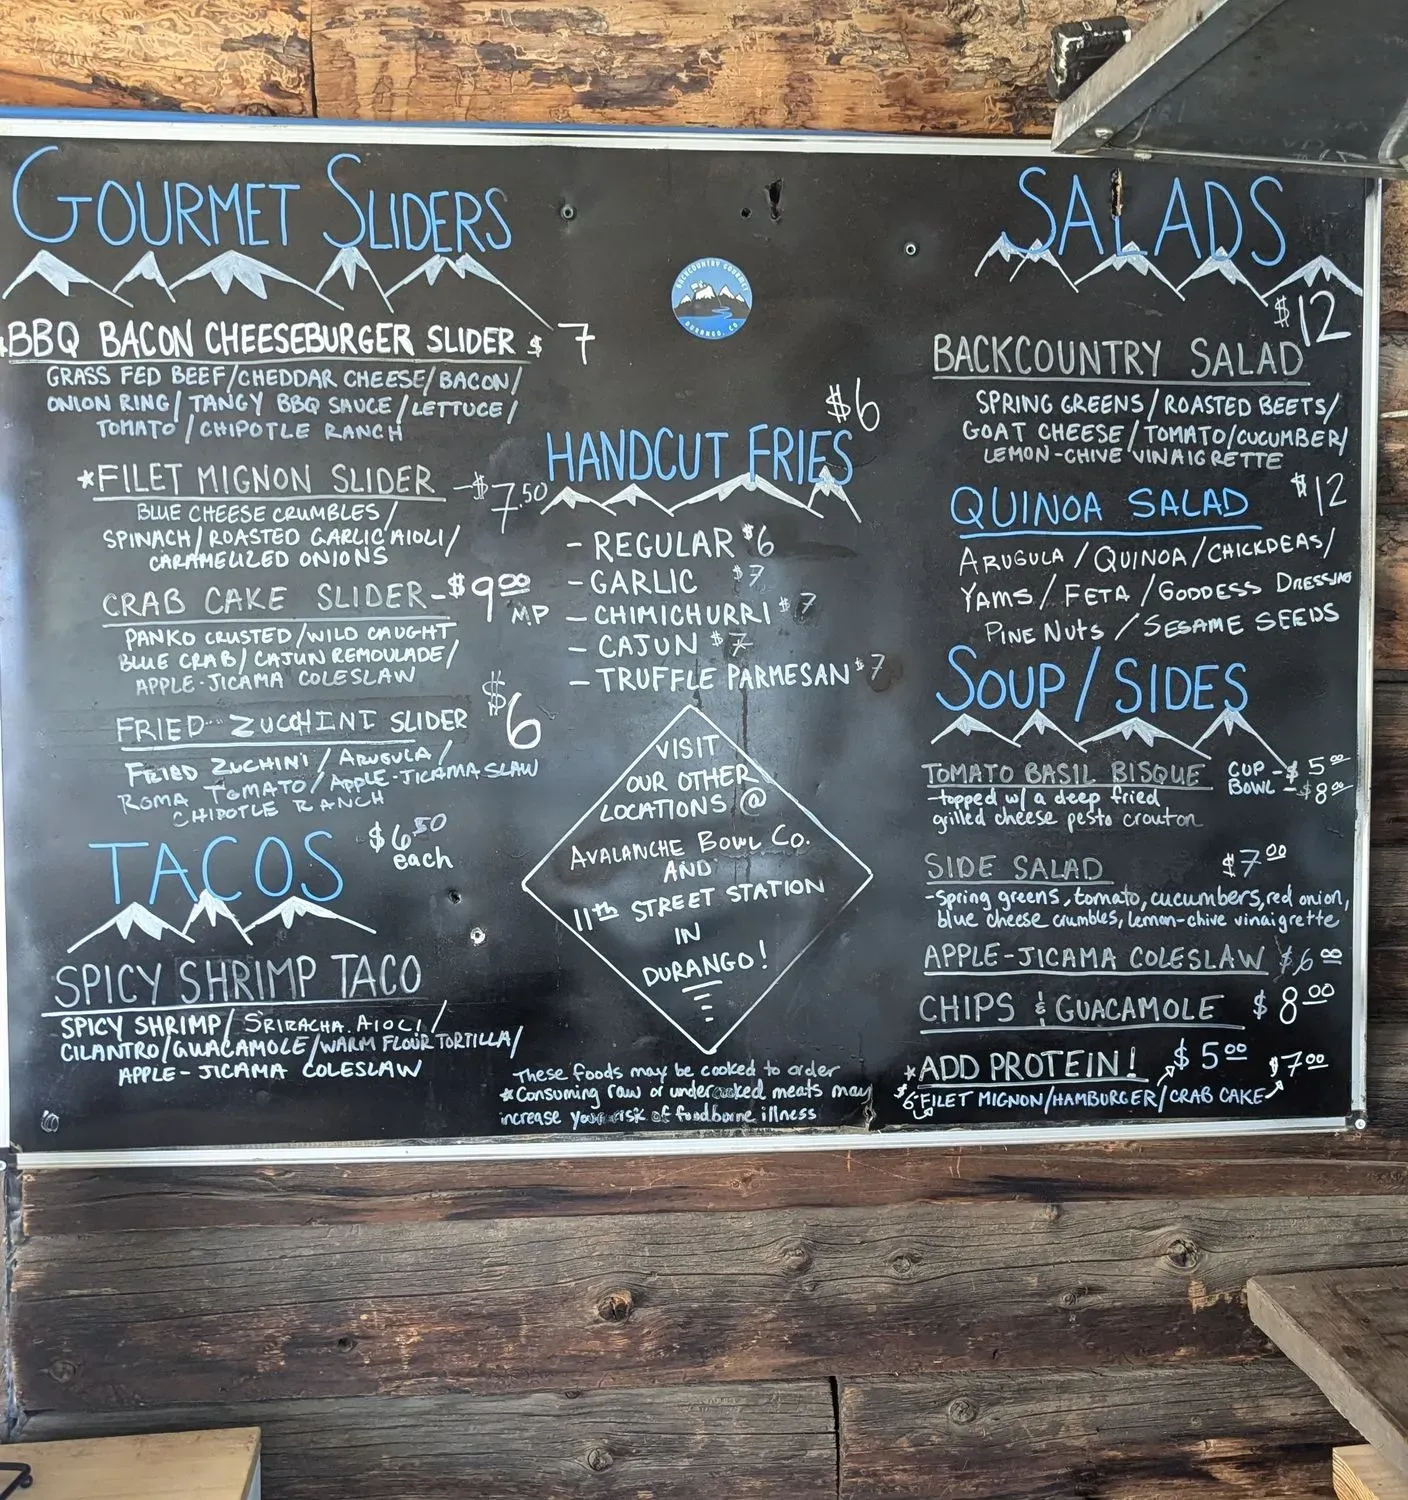 GOURMET SLIDERS
BBQ BACON CHEESEBURGER SLIDER $ 7
GRASS FED BEEF/CHEDDAR CHEESE/BACON/
ONION RING/TANGY BBQ SAUCE/LETTUCE/
TOMATO/CHIPOTLE RANCH
*FILET MIGNON SLIDER -$7.50
BLUE CHEESE CRUMBLES/
SPINACH/ROASTED GARLIC AIOLI/
CARAMELIZED ONIONS
CRAB CAKE SLIDER-$9.00
MP
PANKO CRUSTED/WILD CAUGHT
BLUE CRAB/CAJUN REMOULADE/
APPLE-JICAMA COLESLAW
FRIED ZUCCHINI SLIDER $6
FRIED ZUCHINI/ARUGULA/
ROMA TOMATO/APPLE-JICAMA SLAW
CHIPOTLE RANCH
TACOS $6.50
each
SPICY SHRIMP TACO
SPICY SHRIMP/SRIRACHA AIOLI/
CILANTRO/GUACAMOLE/WARM FLOUR TORTILLA/
APPLE-JICAMA COLESLAW
BACKCOUNTRY GOURMET
DURANGO, CO
$6
HANDCUT FRIES
- REGULAR $6
- GARLIC $7
- CHIMICHURRI $7
- CAJUN $7
- TRUFFLE PARMESAN $7
VISIT
OUR OTHER
LOCATIONS @
AVALANCHE BOWL CO.
AND
11th STREET STATION
IN
DURANGO!
These foods may be cooked to order
*Consuming raw or undercooked meats may
increase your risk of foodborne illness
SALADS
$12
BACKCOUNTRY SALAD
SPRING GREENS/ROASTED BEETS/
GOAT CHEESE/TOMATO/CUCUMBER/
LEMON-CHIVE VINAIGRETTE
QUINOA SALAD $12
ARUGULA/QUINOA/CHICKDEAS/
YAMS/FETA/GODDESS DRESSING
PINE NUTS/SESAME SEEDS
SOUP/SIDES
TOMATO BASIL BISQUE CUP-$5.00
BOWL-$8.00
-topped w/ a deep fried
grilled cheese pesto crouton
SIDE SALAD $7.00
-spring greens, tomato, cucumbers, red onion,
blue cheese crumbles, lemon-chive vinaigrette
APPLE-JICAMA COLESLAW $6.00
CHIPS & GUACAMOLE $8.00
*ADD PROTEIN! $5.00 $7.00
$6 FILET MIGNON/HAMBURGER/CRAB CAKE